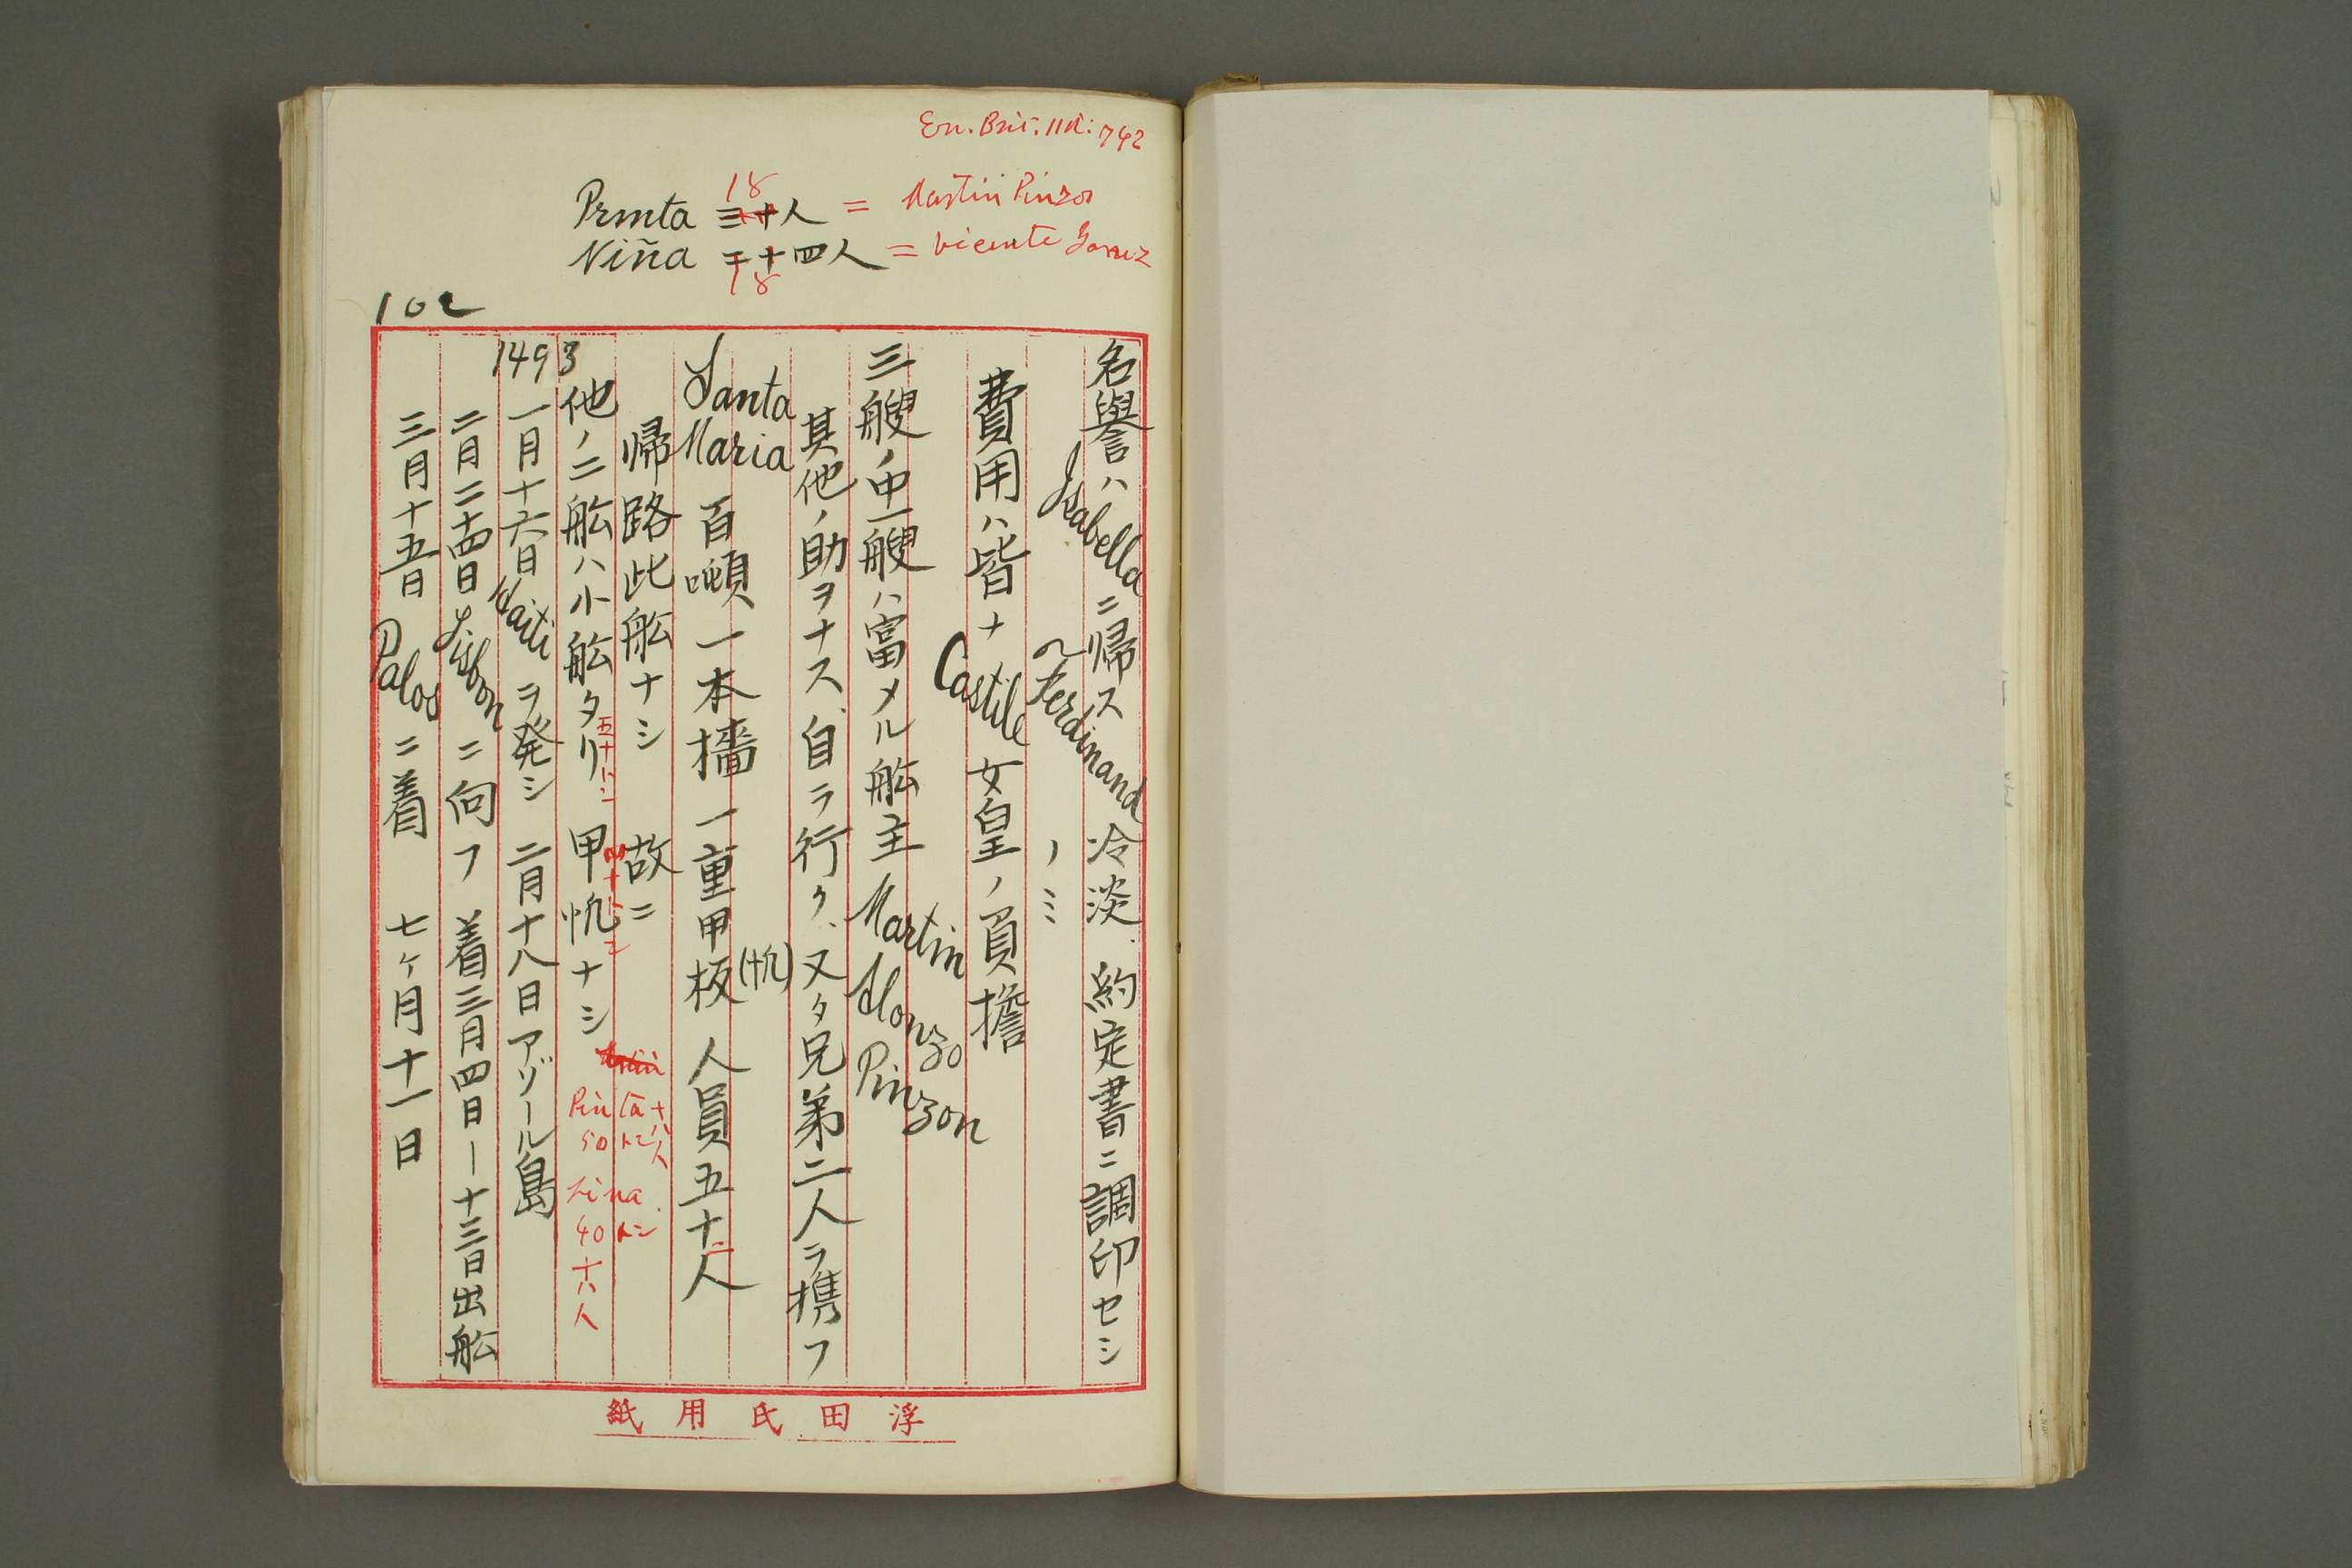 En. Brit. 11th: 742
18
Prmta 三十人 = Martin Pinzon
Niña 二十四人 = Vicente Yanez
18
102
名譽ハ Isabella ニ帰ス Ferdinand 冷淡、約定書ニ調印セシ
ノミ
費用ハ皆ナ Castile 女皇ノ負擔
三艘ノ中一艘ハ富メル舩主 Martin Alonzo Pinzon
其他ノ助ヲナス、自ラ行ク、又タ兄弟二人ヲ携フ
Santa Maria 百噸、一本檣 一重甲板 人員五十二人
帰路此舩ナシ 故ニ
他ノ二舩ハ小舩タリ 甲帆ナシ
五十トン
四十トン
Pinta 十八人
50 トン
Nina
40 トン
十八人
1493
一月十六日 Haiti ヲ発シ 二月十八日アゾール島
二月二十四日 Lisbon ニ向フ 着三月四日ー十三日出舩
三月十五日 Palos ニ着 七ヶ月十一日
浮田氏用紙